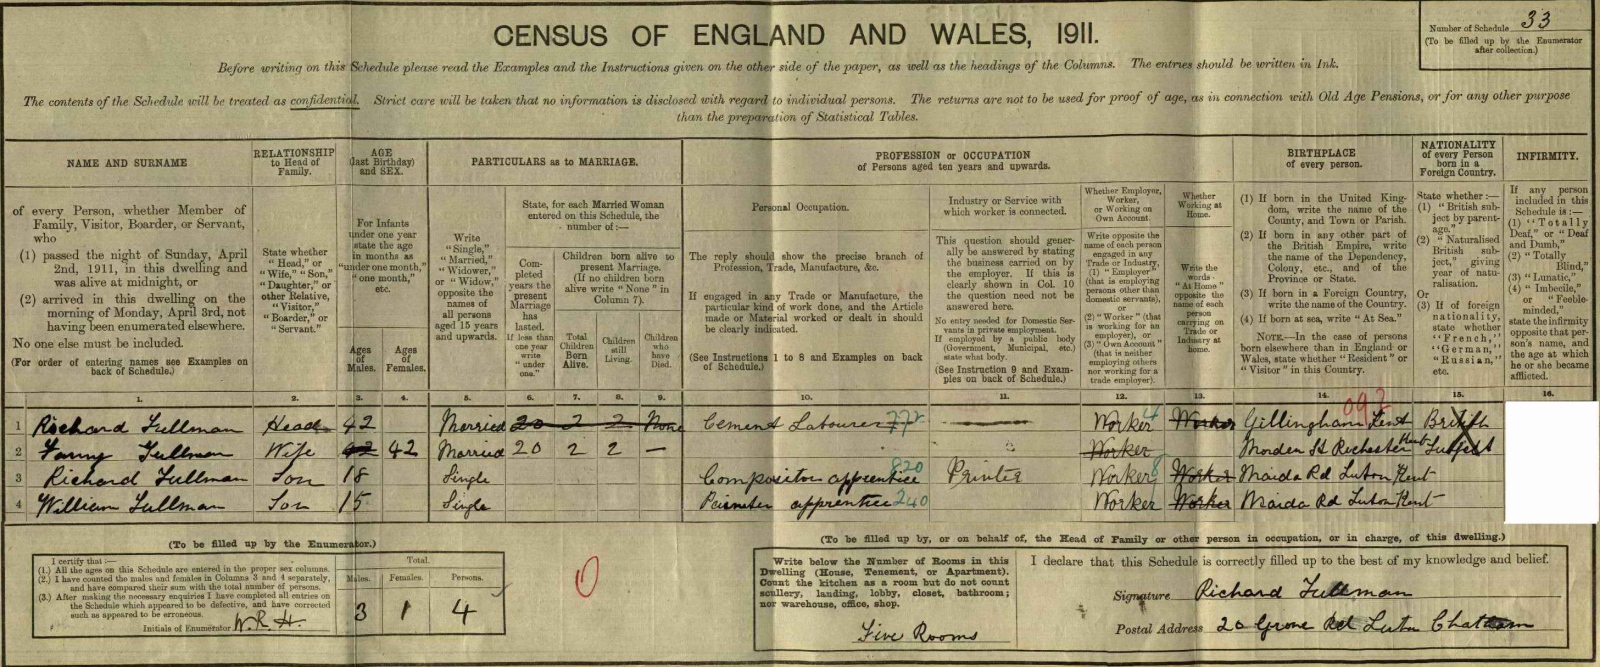 Number of Schedule 33
(To be filled up by the Enumerator
after collection.)
CENSUS OF ENGLAND AND WALES, 1911.
Before writing on this Schedule please read the Examples and the Instructions given on the other side of the paper, as well as the headings of the Columns. The entries should be written in Ink.
The contents of the Schedule will be treated as confidential. Strict care will be taken that no information is disclosed with regard to individual persons. The returns are not to be used for proof of age, as in connection with Old Age Pensions, or for any other purpose
than the preparation of Statistical Tables.
NAME AND SURNAME
of every Person, whether Member of
Family, Visitor, Boarder, or Servant,
who
(1) passed the night of Sunday, April
2nd, 1911, in this dwelling and
was alive at midnight, or
(2) arrived in this dwelling on the
morning of Monday, April 3rd, not
having been enumerated elsewhere.
No one else must be included.
(For order of entering names see Examples on
back of Schedule.)
RELATIONSHIP
to Head of
Family.
State whether
"Head," or
"Wife," "Son,"
"Daughter," or
other Relative,
"Visitor,"
"Boarder," or
"Servant."
AGE
(last Birthday)
and SEX.
For Infants
under one year
state the age
in months as
"under one month,"
"one month,"
etc.
Ages
of
Males.
Ages
of
Females.
PARTICULARS as to MARRIAGE.
Write
"Single,"
"Married,"
"Widower,"
or "Widow,"
opposite the
names of
all persons
aged 15 years
and upwards.
State, for each Married Woman
entered on this Schedule, the
number of:—
Com-
pleted
years the
present
Marriage
has
lasted.
If less than
one year
write
"under
one."
Children born alive to
present Marriage.
(If no children born
alive write "None" in
Column 7).
Total
Children
Born
Alive.
Children
still
Living.
Children
who
have
Died.
PROFESSION or OCCUPATION
of Persons aged ten years and upwards.
Personal Occupation.
The reply should show the precise branch of
Profession, Trade, Manufacture, &c.
If engaged in any Trade or Manufacture, the
particular kind of work done, and the Article
made or Material worked or dealt in should
be clearly indicated.
(See Instructions 1 to 8 and Examples on back
of Schedule.)
Industry or Service with
which worker is connected.
This question should gener-
ally be answered by stating
the business carried on by
the employer. If this is
clearly shown in Col. 10
the question need not be
answered here.
No entry needed for Domestic Ser-
vants in private employment.
If employed by a public body
(Government, Municipal, etc.)
state what body.
(See Instruction 9 and Exam-
ples on back of Schedule.)
Whether Employer,
Worker,
or Working on
Own Account.
Write opposite the
name of each person
engaged in any
Trade or Industry,
(1) "Employer"
(that is employing
persons other than
domestic servants),
or
(2) "Worker" (that
is working for an
employer), or
(3) "Own Account"
(that is neither
employing others
nor working for a
trade employer).
Whether
Working at
Home.
Write the
words
"At Home"
opposite the
name of each
person
carrying on
Trade or
Industry at
home.
BIRTHPLACE
of every person.
(1) If born in the United King-
dom, write the name of the
County, and Town or Parish.
(2) If born in any other part of
the British Empire, write
the name of the Dependency,
Colony, etc., and of the
Province or State.
(3) If born in a Foreign Country,
write the name of the Country.
(4) If born at sea, write "At Sea."
NOTE.—In the case of persons
born elsewhere than in England or
Wales, state whether "Resident" or
"Visitor" in this Country.
NATIONALITY
of every Person
born in a
Foreign Country.
State whether:—
(1) "British sub-
ject by parent-
age."
(2) "Naturalised
British sub-
ject," giving
year of natu-
ralisation.
Or
(3) If of foreign
nationality,
state whether
"French,"
"German,"
"Russian,"
etc.
INFIRMITY.
If any person
included in this
Schedule is:—
(1) "Totally
Deaf," or "Deaf
and Dumb,"
(2) "Totally
Blind,"
(3) "Lunatic,"
(4) "Imbecile,"
or "Feeble-
minded,"
state the infirmity
opposite that per-
son's name, and
the age at which
he or she became
afflicted.
1. 2. 3. 4. 5. 6. 7. 8. 9. 10. 11. 12. 13. 14. 15. 16.
092
1 Richard Tullman Head 42 Married 20 2 2 None Cement Labourer 772 Worker 4 Worker Gillingham Kent British
2 Fanny Tullman Wife 42 42 Married 20 2 2 — Worker Morden St Rochester Kent Subject
3 Richard Tullman Son 18 Single Compositor apprentice 820 Printer Worker 8 Worker Maida Rd Luton Kent
4 William Tullman Son 15 Single apprentice 240 Worker Worker Maida Rd Luton Kent
(To be filled up by the Enumerator.)
I certify that:—
(1.) All the ages on this Schedule are entered in the proper sex columns.
(2.) I have counted the males and females in Columns 3 and 4 separately,
and have compared their sum with the total number of persons.
(3.) After making the necessary enquiries I have completed all entries on
the Schedule which appeared to be defective, and have corrected
such as appeared to be erroneous.
Initials of Enumerator W.R.H.
Total.
Males. Females. Persons.
3 1 4
0
(To be filled up by, or on behalf of, the Head of Family or other person in occupation, or in charge, of this dwelling.)
Write below the Number of Rooms in this
Dwelling (House, Tenement, or Apartment).
Count the kitchen as a room but do not count
scullery, landing, lobby, closet, bathroom;
nor warehouse, office, shop.
Five Rooms
I declare that this Schedule is correctly filled up to the best of my knowledge and belief.
Signature Richard Tullman
Postal Address 20 Grove Rd Luton Chatham